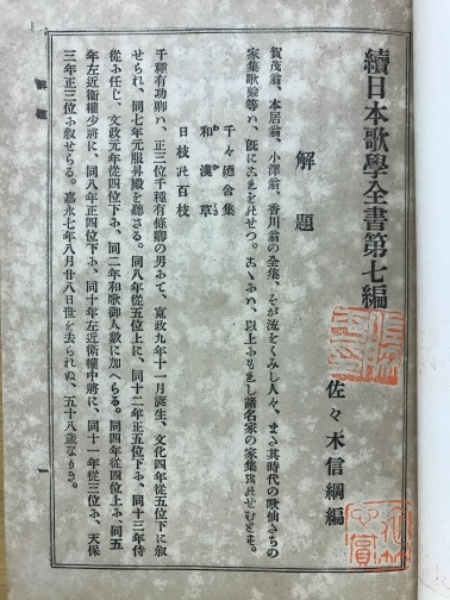 續日本歌學全書第七編
佐々木信綱編
解題
賀茂翁、本居翁、小澤翁、香川翁の全集、そが流をくみし人々、また其時代の歌仙たちの
家集歌論等ハ、既にこれをのせつ。こゝにハ、以上にもれし諸名家の家集をのせむとす。
千々廼舍集
和漢草
日枝の百枝
千種有功卿ハ、正三位千種有條卿の男にて、寛政九年十一月誕生、文化四年從五位下に叙
せられ、同七年元服昇殿を聽さる。同八年從五位上に、同十二年正五位下に、同十三年侍
從に任じ、文政元年從四位下に、同二年和歌御人數に加へらる。同四年從四位上に、同五
年左近衛權少將に、同八年正四位下に、同十年左近衛權中將に、同十一年從三位に、天保
三年正三位に叙せらる。嘉永七年八月廿八日世を去られぬ、五十八歳なりき。
解題
一